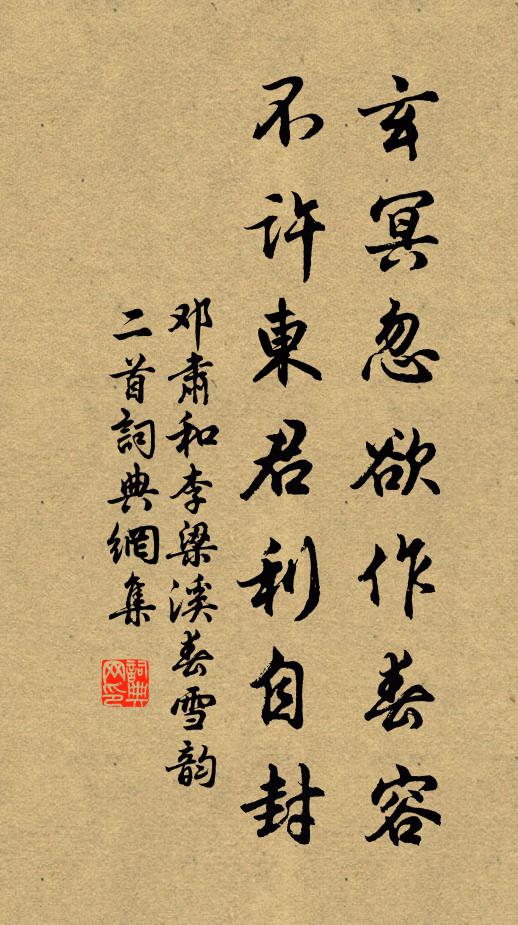 玄冥忽欲作春容
不許東君利自封
邓肅和李梁溪春雪韵
二首詞典網集
詞典网印